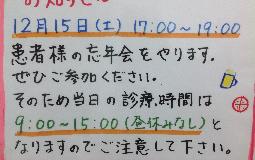 お知らせ
12月15日(土) 17:00~19:00
患者様の忘年会をやります.
ぜひご参加ください.
そのため当日の診療.時間は
9:00~15:00(昼休みなし)と
なりますのでご注意して下さい.